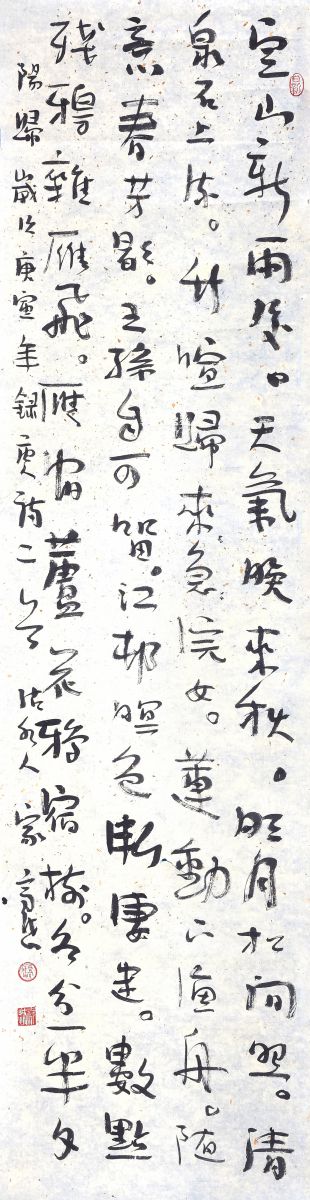 空山新雨後。天氣晚來秋。明月松間照。清
泉石上流。竹喧歸來急浣女。蓮動下漁舟。隨
意春芳歇。王孫自可留。江邨暝色漸凄迷。數點
殘鴉雜雁飛。雁宿蘆花鴉宿樹。各分一半夕
陽歸 歲次庚寅年錄唐詩二首 人 家